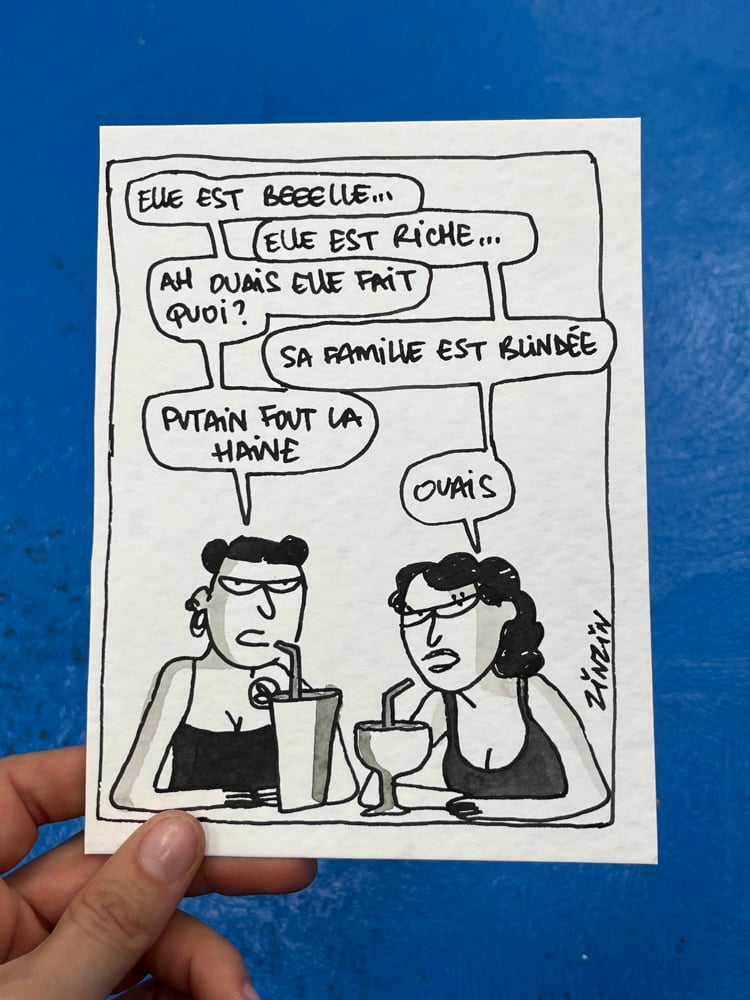 ELLE EST BEEELLE...
ELLE EST RICHE...
AH OUAIS ELLE FAIT
QUOI?
SA FAMILLE EST BLINDÉE
PUTAIN FOUT LA
HAINE
OUAIS
ZINZIN